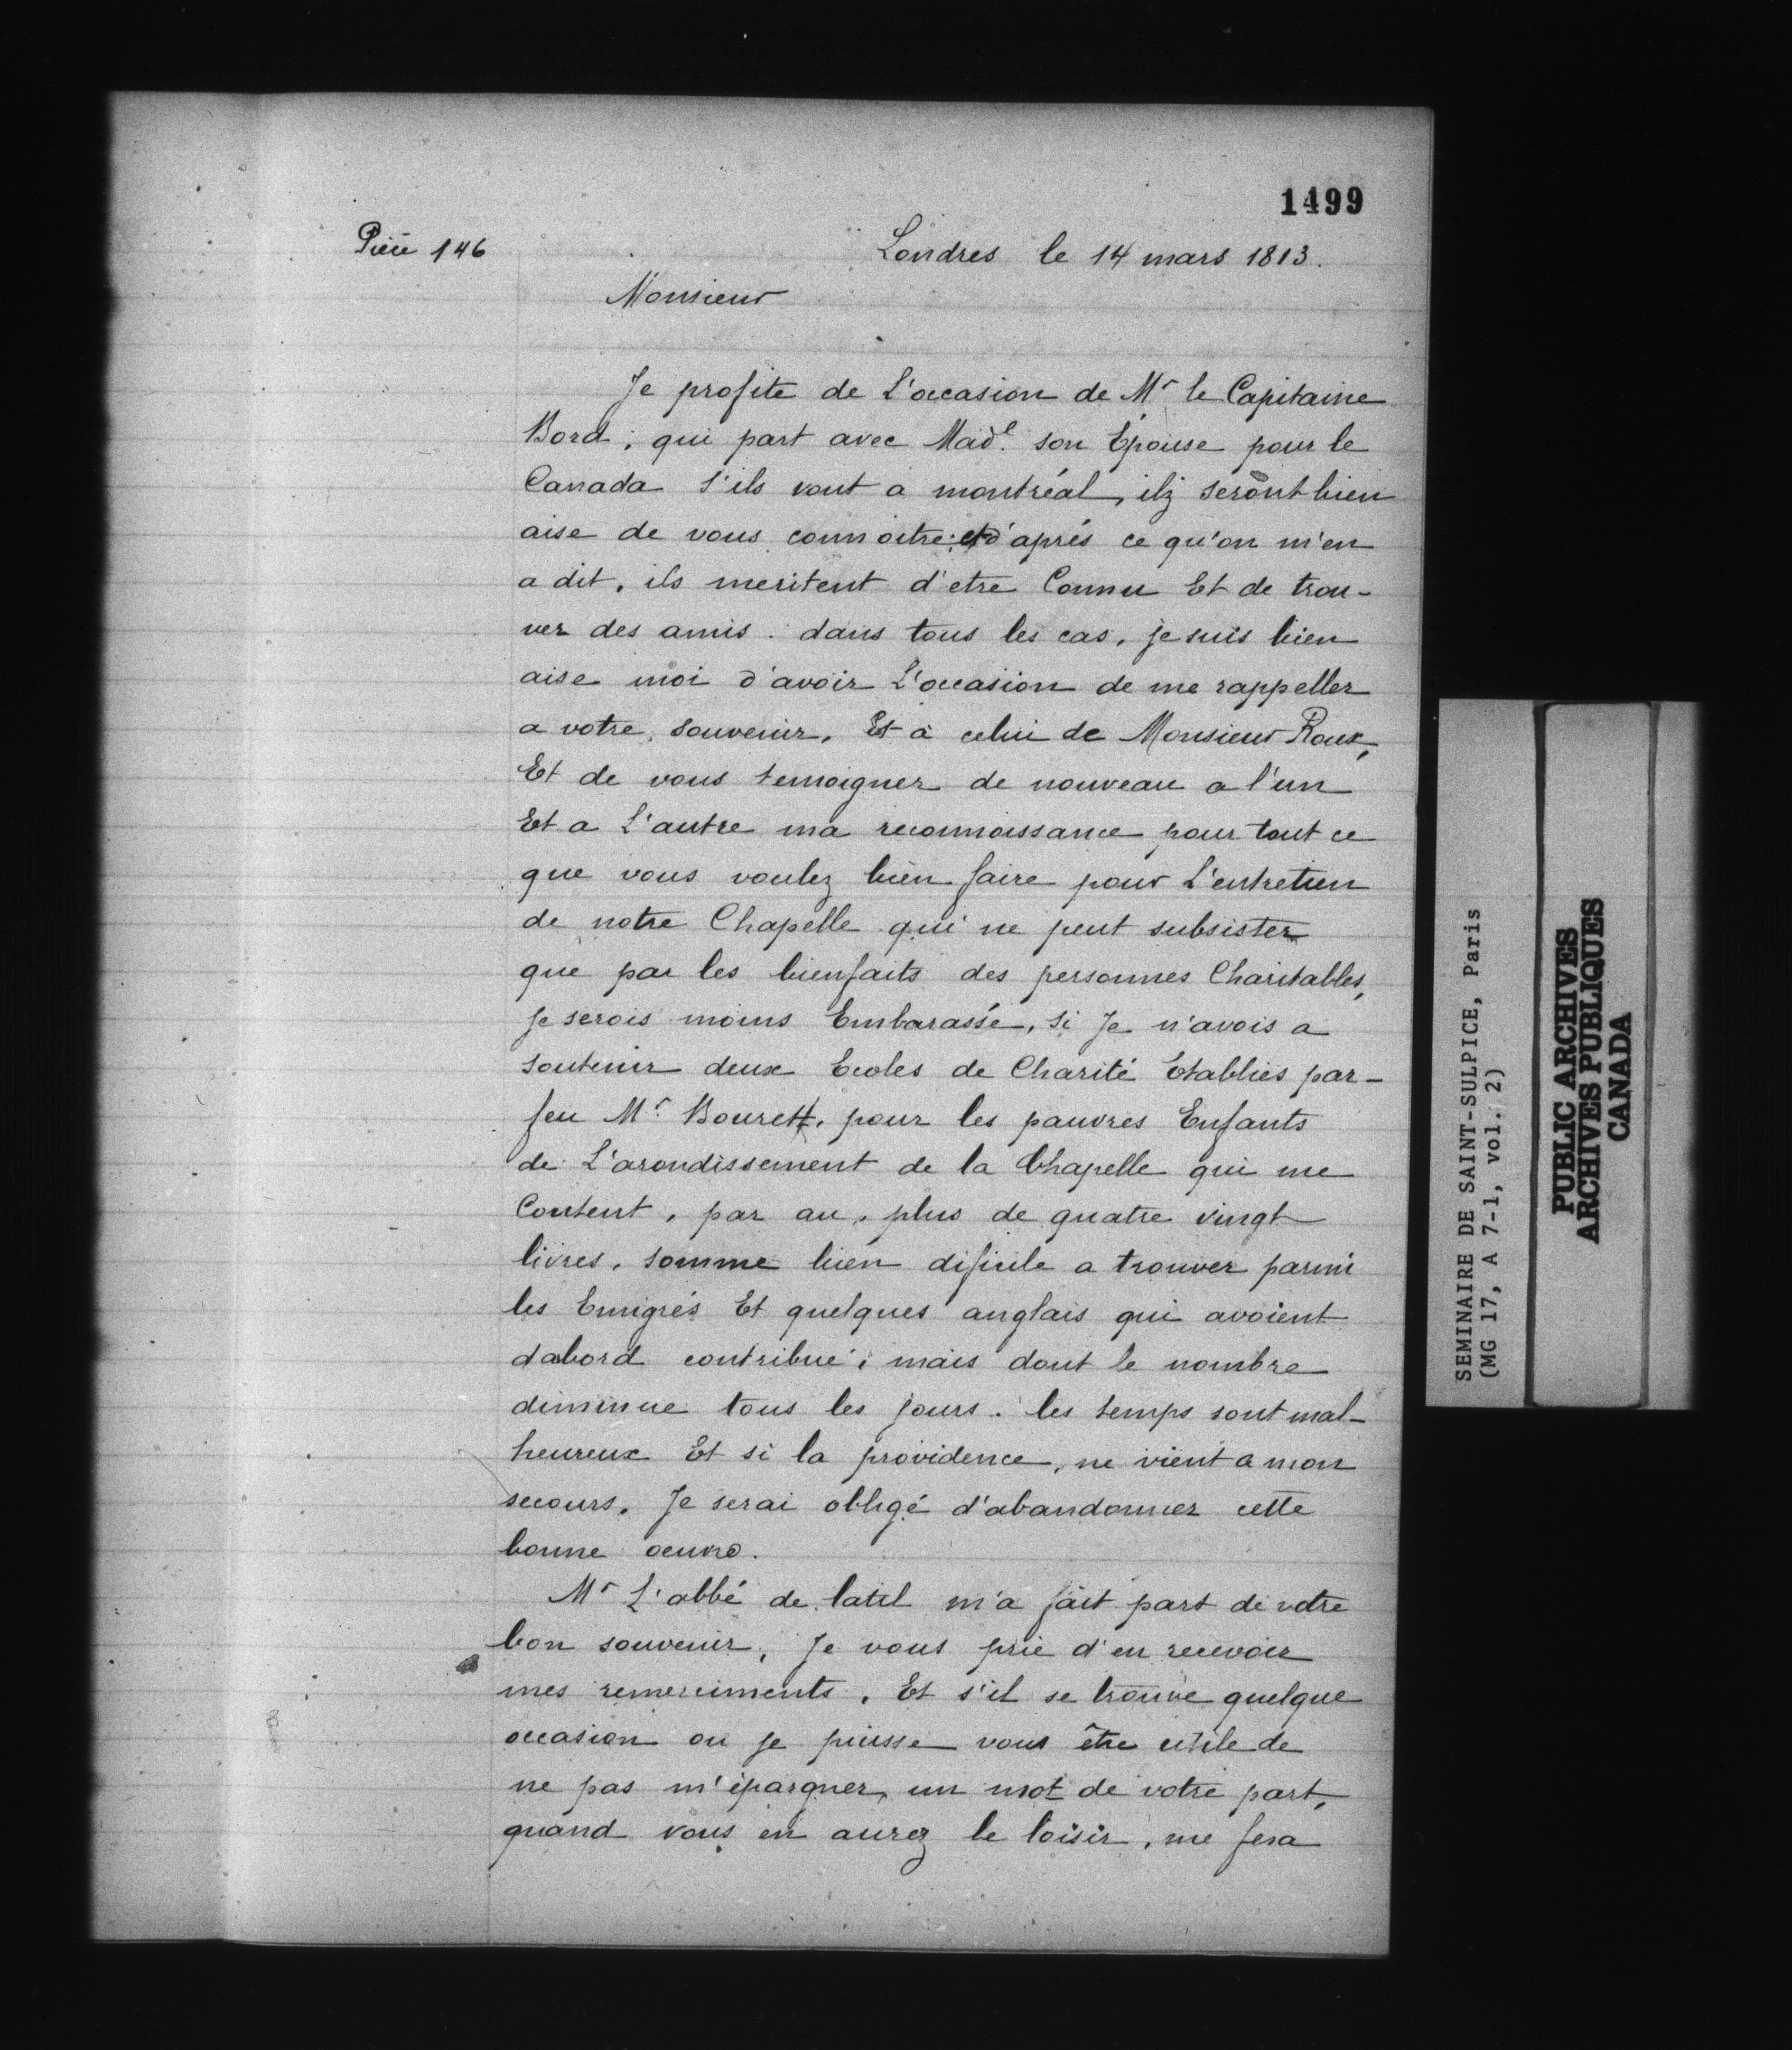 1499
Pièce 146
Londres le 14 mars 1813.
Monsieur
Je profite de L'occasion de Mr le Capitaine
Bord, qui part avec Made son Épouse pour le
Canada s'ils vont a montréal, ilz seront bien
aise de vous connoitre et d'aprés ce qu'on m'en
a dit, ils meritent d'etre Connu Et de trou-
ver des amis. dans tous les cas, je suis bien
aise moi d'avoir L'occasion de me rappeller
a votre souvenir, Et à celui de Monsieur Roux,
Et de vous temoigner de nouveau a l'un
Et a L'autre ma reconnoissance pour tout ce
que vous voulez bien faire pour L'entretien
de notre Chapelle qui ne peut subsister
que par les bienfaits des personnes Charitables,
je serois moins Embarassé, si Je n'avois a
soutenir deux Ecoles de Charité Etablies par-
feu Mr Bourett, pour les pauvres Enfants
de L'arondissement de la Chapelle qui me
Coutent, par an, plus de quatre vingt
livres, somme bien dificile a trouver parmi
les Emigrés Et quelques anglais qui avoient
dabord contribué, mais dont le nombre
diminue tous les jours. les temps sont mal-
heureux Et si la providence, ne vient a mon
secours, Je serai obligé d'abandonner cette
bonne oeuvre.
Mr L'abbé de latil m'a fait part de votre
bon souvenir, Je vous prie d'en recevoir
mes remerciments, Et s'il se trouve quelque
occasion ou je puisse vous être utile de
ne pas m'épargner, un mot de votre part,
quand vous en aurez le loisir, me fera
SEMINAIRE DE SAINT-SULPICE, Paris
(MG 17, A 7-1, vol. 2)
PUBLIC ARCHIVES
ARCHIVES PUBLIQUES
CANADA